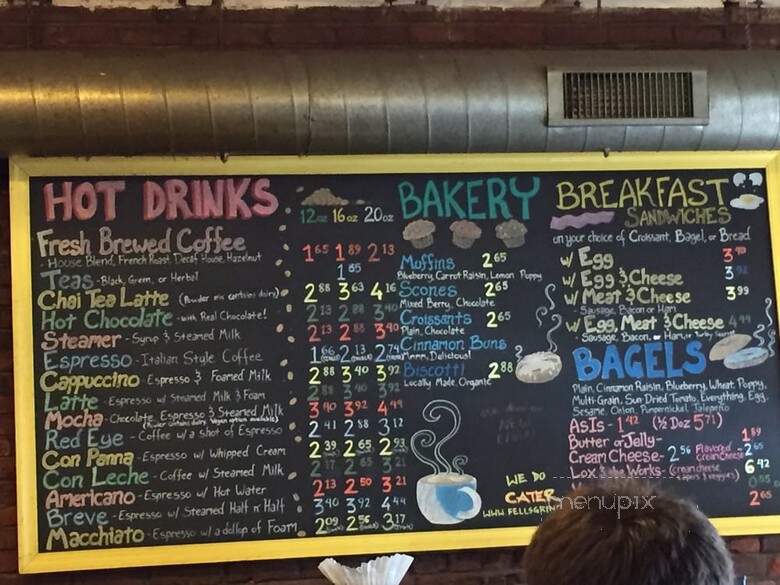 HOT DRINKS
12oz 16oz 20oz
Fresh Brewed Coffee 1.65 1.89 2.13
- House Blend, French Roast, Decaf House, Hazelnut
Teas - Black, Green, or Herbal 1.65
Chai Tea Latte (Powder mix contains dairy) 2.88 3.63 4.16
Hot Chocolate - with Real Chocolate! 2.13 2.88 3.40
Steamer - Syrup & Steamed Milk 2.13 2.88 3.40
Espresso - Italian Style Coffee 2.13 2.74
Cappuccino - Espresso & Foamed Milk 2.88 3.40 3.92
Latte - Espresso w/ Steamed Milk & Foam 2.88 3.40 3.92
Mocha - Chocolate, Espresso & Steamed Milk 3.40 3.92 4.44
Red Eye - Coffee w/ a shot of Espresso 2.41 2.88 3.12
Con Panna - Espresso w/ Whipped Cream 2.39 2.65 2.93
Con Leche - Coffee w/ Steamed Milk 2.17 2.65 3.21
Americano - Espresso w/ Hot Water 2.13 2.50 3.21
Breve - Espresso w/ Steamed Half n' Half 3.40 3.92 4.44
Macchiato - Espresso w/ a dollop of Foam 2.09 2.56 3.17
BAKERY
Muffins 2.65
Blueberry, Carrot Raisin, Lemon Poppy
Scones 2.65
Mixed Berry, Chocolate
Croissants 2.65
Plain, Chocolate
Cinnamon Buns
Mmm, Delicious!
Biscotti 2.88
Locally Made Organic
WE DO
CATER
WWW.FELLSGRIN
BREAKFAST
SANDWICHES
on your choice of Croissant, Bagel, or Bread
w/ Egg
w/ Egg & Cheese
w/ Meat & Cheese 3.99
- Sausage, Bacon or Ham
w/ Egg, Meat & Cheese 4.99
- Sausage, Bacon, or Ham, or
BAGELS
Plain, Cinnamon Raisin, Blueberry, Wheat, Poppy,
Multi-Grain, Sun-Dried Tomato, Everything, Egg,
Sesame, Onion, Pumpernickel, Jalapeño
As Is - 1.42 (½ Doz 5.71)
Butter or Jelly - 1.89
Cream Cheese - 2.56 Flavored Cream Cheese 2.65
Lox & the Works - (cream cheese, capers & veggies) 6.42
2.65
menupix